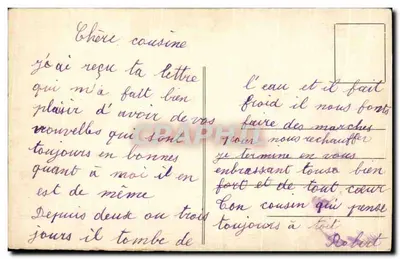 Chère cousine
j'ai reçu ta lettre
qui m'a fait bien
plaisir d'avoir de vos
nouvelles qui sont
toujours en bonnes
quant à moi il en
est de même
Depuis deux ou trois
jours il tombe de
l'eau et il fait
froid il nous fonts
faire des marches
pour nous rechauffer
je termine en vous
enbrassant tousa bien
fort et de tout cœur
Ton cousin qui pense
toujours à toit
Robert